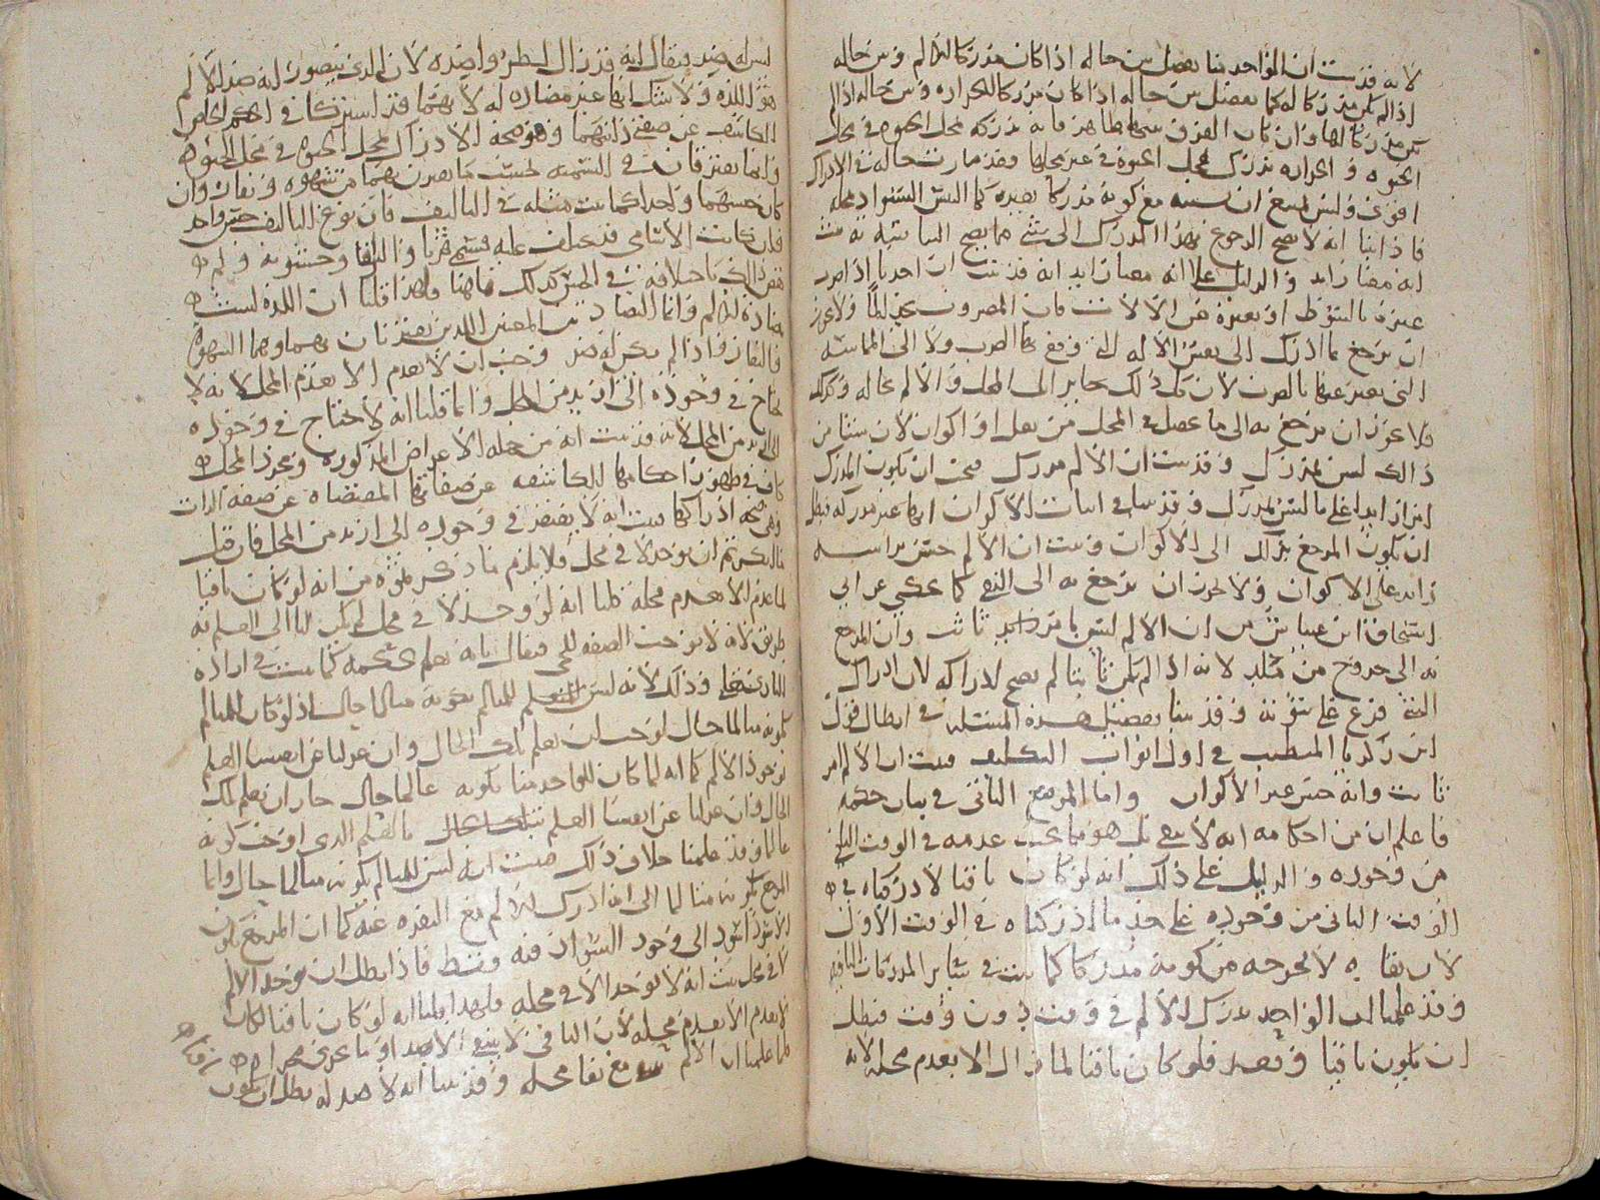 لانه قد ثبت ان الواحد منا يفصل بين حاله اذا كان مدركا للالم وبين حاله
اذا لم يكن مدركا له كما يفصل بين حاله اذا كان مدركا للحراره وبين حاله اذا لم
يكن مدركا لها وان كان الفرق بينهما ظاهر فانه يدركه بمحل الحيوه في محل
الحيوه والحراره تدرك بمحل الحيوه في غير محلها وقد صارت حاله في الادراك
اقوى وليس يمتنع ان مع كونه مدركا بغيره كما ليس السواد محله
فاذا ثبت انه لا يصح الرجوع بهذا المدرك الى شي مما يصح الباسه به ثبت
انه معنا زايد والدليل على انه معنا زايد انه قد ثبت ان احدنا اذا ضرب
غيره بالسوط او بغيره من الالات فان المضروب يجد الما ولا يجوز
ان يرجع ما ادرك الى نفس الاله التي وقع بها الضرب ولا الى المماسه
التي يعبر عنها بالضرب لان كل ذلك جاير الى المحل والالم بحاله وكذلك
فلا يجوز ان يرجع به الى ما يحصل في المحل من نقل او اكوان لان شيئا من
ذلك ليس بمدرك وقد ثبت ان الالم مدرك فيجب ان يكون المدرك
امرا زايدا على ما ليس بمدرك وقد بينا في اثبات الاكوان انها غير مدركه فبطل
ان يكون المرجع بذلك الى الاكوان وثبت ان الالم جنس براسه
زايد على الاكوان ولا يجوز ان يرجع به الى النفي كما يحكى عن ابي
اسحاق ابن عياش من ان الالم ليس بامر زايد ثابت وان المرجع
به الى خروج من مثله لانه اذا لم يكن ثابتا لم يصح ادراكه لان ادراك
الشي فرع على ثبوته وقد بينا تفصيل هذه المسئله في ابطال قول
ابن زكريا المتطبب في اول ابواب التكليف فثبت ان الالم امر
ثابت وانه جنس غير الاكوان واما الموضع الثاني في بيان حكمه
فاعلم ان من احكامه انه لا يبقى بل هو مما يجب عدمه في الوقت الثاني
من وجوده والدليل على ذلك انه لو كان باقيا لادركناه في
الوقت الثاني من وجوده على حد ما ادركناه في الوقت الاول
لان بقاه لا يخرجه من كونه مدركا كما ثبت في سائر المدركات الباقيه
وقد علمنا ان الواحد يدرك الالم في وقت دون وقت فبطل
ان يكون باقيا وبعد فلو كان باقيا لما زال الا بعدم محله لانه
ليس له ضد فيقال انه قد زال لطرو ضده لان الذي يتصور انه ضد للالم
هو اللذه ولا شك انها غير مضاده له لانهما قد اشتركا في الحكم الخاص
الكاشف عن صفتي ذاتهما وهو صحه الادراك بمحل الحيوه في محل الحيوه
وانما يفترقان في التسميه بحسب ما يقترن بهما من شهوه ونفار وان
كان جنسهما واحدا كما ثبت مثله في التاليف فان نوع التاليف جنس واحد
فان كانت الاسامي قد تختلف عليه فيسمى قربا والتزاقا وخشونه ولم
يقتض ذلك باختلافه في الجنس كذلك هاهنا ولهذا قلنا ان اللذه ليست
بضاده للالم وانما التضاد بين المعنيين اللذين يقترنان بهما وهما الشهوه
والنفار واذا لم يكن له ضد وجب ان لا يعدم الا بعدم المحل لانه لا
يحتاج في وجوده الى ازيد من المحل وانما قلنا انه لا يحتاج في وجوده
الى ازيد من المحل لانه قد ثبت انه من جمله الاعراض المذكوره ومجرد المحل
كاف في ظهور احكامها الكاشفه عن صفاتها المقتضاه عن صفه الذات
وهي صحه ادراكها ثبت انه لا يفتقر في وجوده الى ازيد من المحل فان قيل
ما انكرتم ان يوجد لا في محل فلا يلزم ما ذكرتموه من انه لو كان باقيا
لما عدم الا بعدم محله قلنا انه لو وجد لا في محل لم يكن لنا الى العلم به
طريق لانه لا يوجب الصفه للحي فيقال بانه يعلم بحكمه كما ثبت في اراده
الباري تعالى وذلك لانه ليس للمتالم بكونه متالما حال اذ لو كان للمتالم
بكونه متالما حال لوجب ان يعلم تلك الحال وان عدلنا عن انفسنا العلم
بوجود الالم كما انه لما كان للواحد منا بكونه عالما حال جاز ان يعلم تلك
الحال وان عدلنا عن انفسنا العلم بتلك الحال بالعلم الذي اوجب كونه
عالما وقد علمنا خلاف ذلك فثبت انه ليس للمتالم بكونه متالما حال وانما
المرجع بكونه متالما الى انه ادرك الالم مع النفره عنه كما ان المرجع بكون
الاسود اسود الى وجود السواد فيه فقط فاذا بطل ان يوجد الالم
لا في محل ثبت انه لا يوجد الا في محله فلهذا قلنا انه لو كان باقيا لكان
لا يعدم الا بعدم محله لان الباقي لا ينتفي الا بضد او ما يجري مجراه
فلما علمنا ان الالم مع بقا محله وقد بينا انه لا ضد له بطل ان يكون